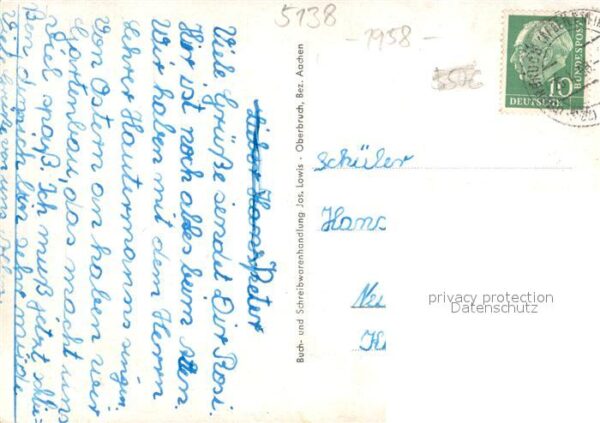 5138
-1958-
350
10
DEUTSCHE BUNDESPOST
Lieber Hans Peter
Viele Grüße sendet Dir Rosi.
Hier ist noch alles beim alten.
Wir haben mit dem Herrn
Lehrer Hautermanns singen.
Von Ostern an haben wir
Gartenbau, das macht uns
viel spaß. Ich muß jetzt schlie-
ßen denn ich bin sehr müde
Viel Grüße von uns allen
Buch- und Schreibwarenhandlung Jos. Lowis · Oberbruch, Bez. Aachen
Schüler
Hans
privacy protection
Datenschutz